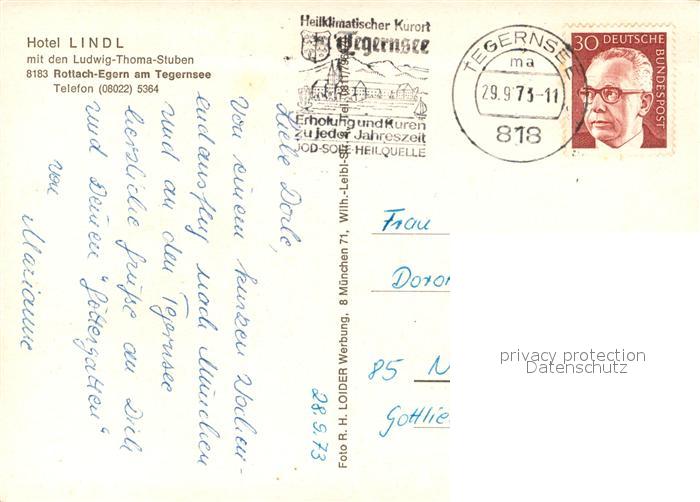 Hotel LINDL
mit den Ludwig-Thoma-Stuben
8183 Rottach-Egern am Tegernsee
Telefon (08022) 5364
Heilklimatischer Kurort
Tegernsee
Erholung und Kuren
zu jeder Jahreszeit
JOD-SOLE-HEILQUELLE
TEGERNSEE
ma
29.9.73-11
818
30 DEUTSCHE
BUNDESPOST
Liebe Dorle,
Von einem kurzen Wochen-
endausflug nach München
und an den Tegernsee
herzliche Grüße an Dich
und Deinen "Göttergatten"
von
Marianne
28.9.73
Foto R. H. LOIDER Werbung, 8 München 71, Wilh.-Leibl-Str.
Frau
Doro
85 N
Gottlie
privacy protection
Datenschutz